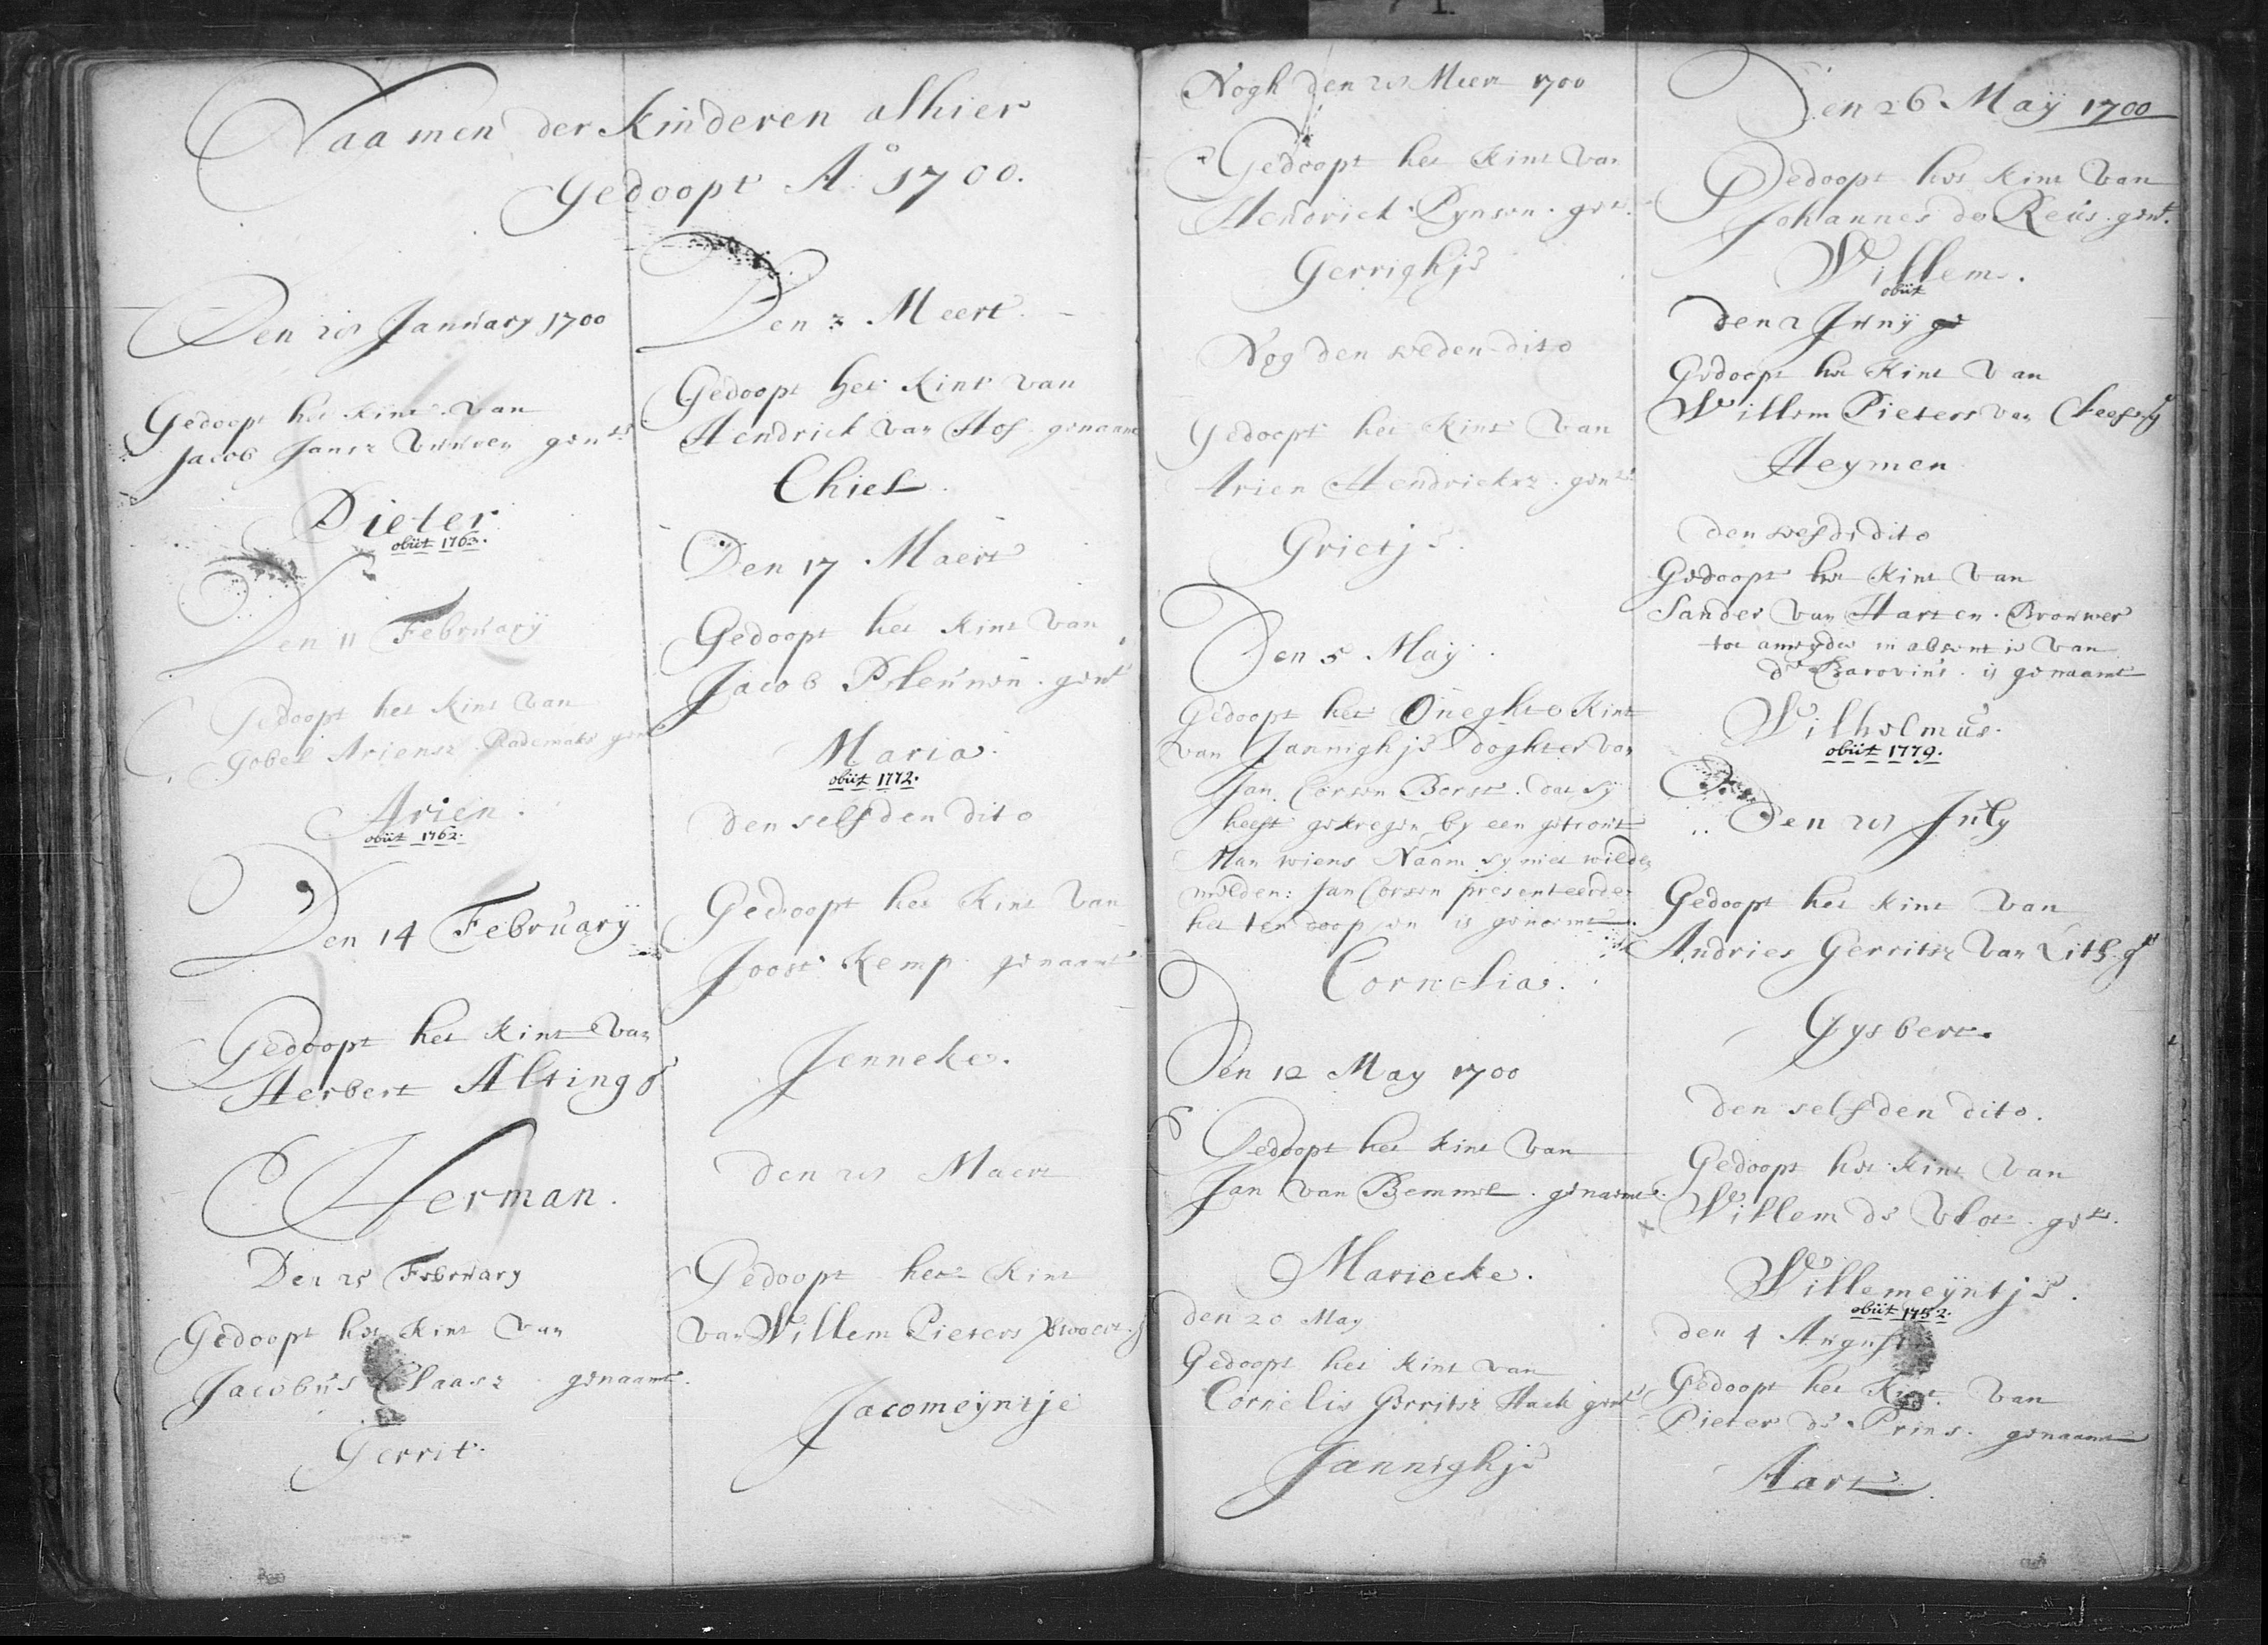 Naamen der Kinderen alhier
Gedoopt A° 1700.
Den January 1700
Gedoopt het kint van
Jacob Jansz gent
Pieter
obiit 1763.
Den 11 February
Gedoopt het kint van
Gobel Ariensz Rademaker gent
Arien.
obiit 1762.
Den 14 February
Gedoopt het kint van
Herbert Alting g
Herman.
Den 25 February
Gedoopt het kint van
Jacobus Claasz genaamt.
Gerrit.
Den 3 Meert
Gedoopt het kint van
Hendrick van Hof genaamt
Chiel.
Den 17 Maert
Gedoopt het kint van
Jacob gent
Maria.
obiit 1772.
den selfden dito
Gedoopt het kint van
Joost Kemp genaamt
Jenneke.
den Maert
Gedoopt het kint
van Willem Pieters
Jacomeyntje
Nogh den Meert 1700
Gedoopt het kint van
Hendrick Pynsen. gent.
Gerrighje
Nog den selden dito
Gedoopt het kint van
Arien Hendricksz. gent
Grietje.
Den 5 May.
Gedoopt het Oneghte Kint
van Jannighje doghter van
Jan Corsen Borst. dat sy
heeft gekregen by een getrout
Man wiens Naam sy niet wilde
melden: Jan Corsen presenteerde
het ten doop en is genoemt.
Cornelia.
Den 12 May 1700
Gedoopt het kint van
Jan van Bemmel. genaemt.
Mariecke.
den 20 May
Gedoopt het kint van
Cornelis Gerritsz Hack gent
Jannighje
Den 26 May 1700
Gedoopt het kint van
Johannes de Reus. gent.
Willem.
obiit
den 2 Juny
Gedoopt het kint van
Willem Pieters van
Heymen
den selfde dito
Gedoopt het kint van
Sander van Harten. Brouwer
tot in absentie van
ds is genaamt
Wilhelmus.
obiit 1779.
Den July
Gedoopt het kint van
Andries Gerritsz van Lith. gt
Gysbert.
den selfden dito.
Gedoopt het kint van
Willem de Vlot. gent.
Willemeyntje.
obiit 1752.
den 4 August
Gedoopt het kint van
Pieter de Prins. genaamt
Aart.